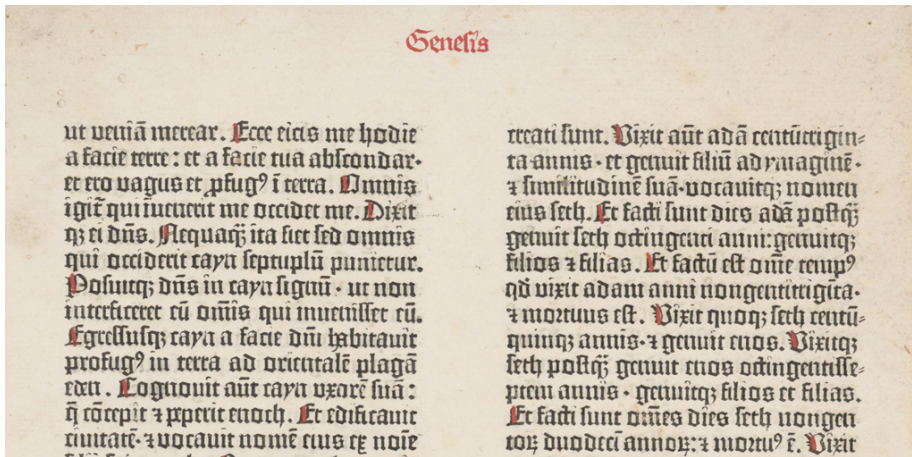 Genesis
ut veniā merear. Ecce eicis me hodie
a facie terre: et a facie tua abscondar·
et ero vagus et ꝓfugꝰ ī terra. Omnis
igit̄ qui īvenerit me occidet me. Dixit
qꝫ ei dn̄s. Nequaq̄ȝ ita fiet sed omnis
qui occiderit cayn septuplū punietur.
Posuitqꝫ dn̄s in cayn signū · ut non
interficeret eū om̄is qui invenisset eū.
Egressusqꝫ cayn a facie dn̄i habitavit
profugꝰ in terra ad orientalē plagā
eden. Cognovit aūt cayn vxorē suā:
q̄ cōcepit ⁊ peperit enoch. Et edificavit
civitatē· ⁊ vocavit nomē eius ex noīe
creati sunt. Vixit aūt adā centūtrigin⸗
ta annis · et genuit filiū ad ymaginē·
⁊ similitudinē suā· vocavitqꝫ nomen
eius seth. Et facti sunt dies adā postq̄ȝ
genuit seth octingenti anni: genuitqꝫ
filios ⁊ filias. Et factū est om̄e tempꝰ
qd̄ vixit adam anni nongentitrigīta·
⁊ mortuus est. Vixit quoqꝫ seth centū⸗
quinqꝫ annis· ⁊ genuit enos. Vixitqꝫ
seth postq̄ȝ genuit enos octingentisse⸗
ptem annis · genuitqꝫ filios et filias.
Et facti sunt om̄es dies seth nongen
toꝝ duodecī annoꝝ: ⁊ mortuꝰ ē. Vixit